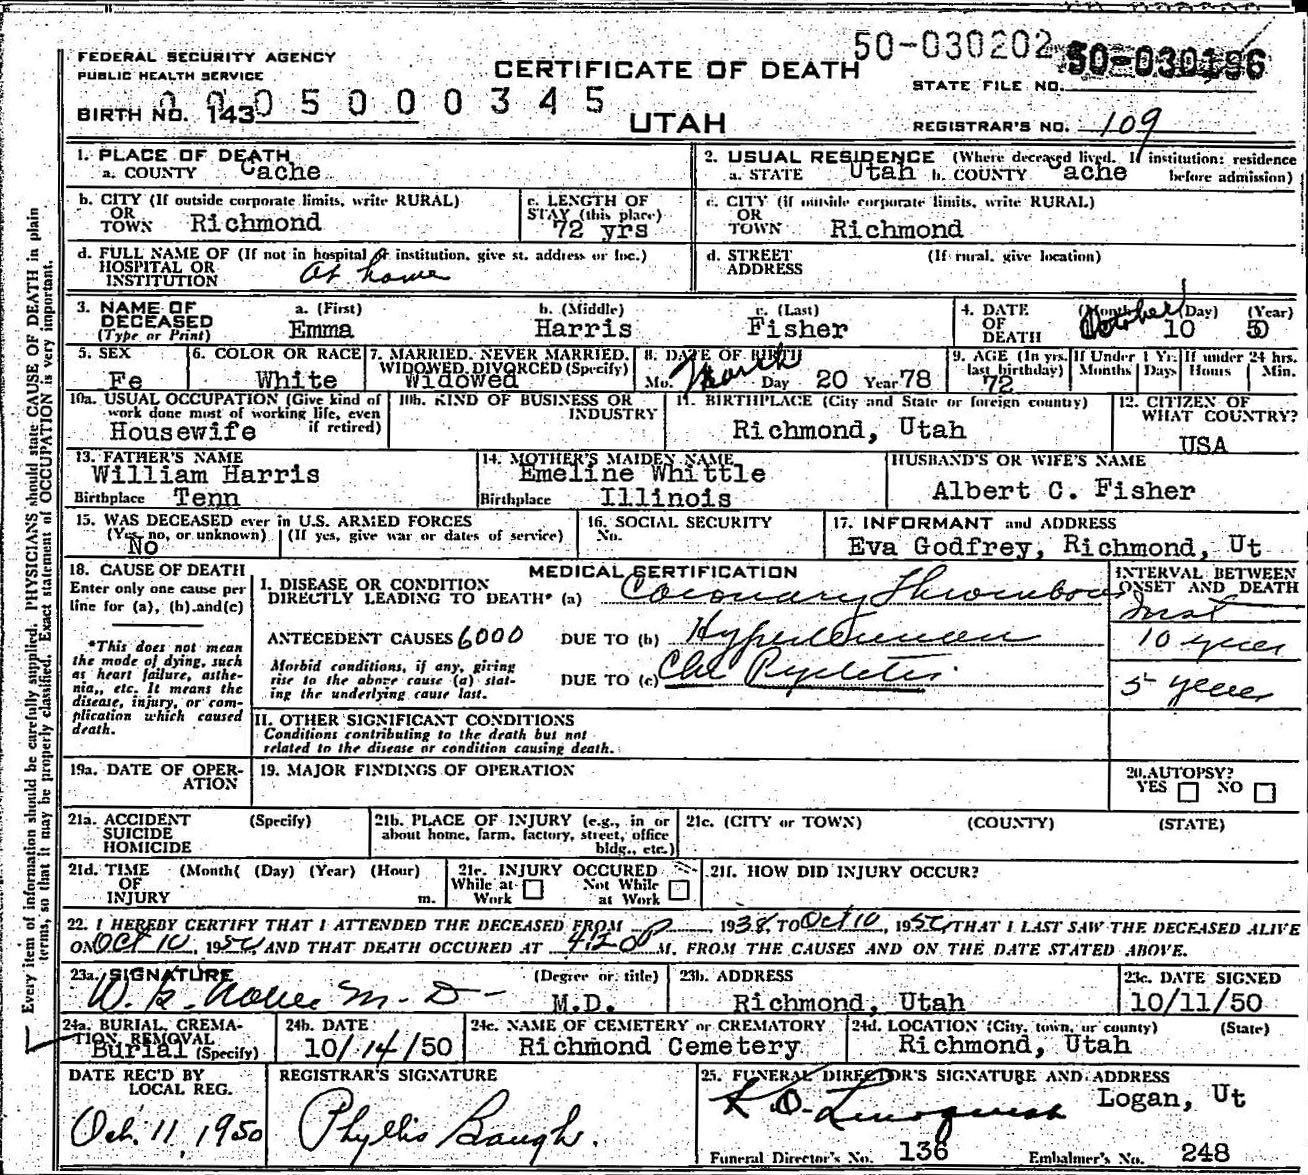 50-030202 50-030196
FEDERAL SECURITY AGENCY
PUBLIC HEALTH SERVICE
CERTIFICATE OF DEATH
STATE FILE NO.
0005000345
BIRTH NO. 143
UTAH
REGISTRAR'S NO. 109
Every item of information should be carefully supplied. PHYSICIANS should state CAUSE OF DEATH in plain
terms, so that it may be properly classified. Exact statement of OCCUPATION is very important.
1. PLACE OF DEATH
a. COUNTY Cache
2. USUAL RESIDENCE (Where deceased lived. If institution: residence
a. STATE Utah b. COUNTY Cache before admission)
b. CITY (If outside corporate limits, write RURAL)
OR
TOWN Richmond
c. LENGTH OF
STAY (this place)
72 yrs
c. CITY (if outside corporate limits, write RURAL)
OR
TOWN Richmond
d. FULL NAME OF (If not in hospital or institution, give st. address or loc.)
HOSPITAL OR
INSTITUTION At home
d. STREET (If rural, give location)
ADDRESS
3. NAME OF a. (First) b. (Middle) c. (Last)
DECEASED Emma Harris Fisher
(Type or Print)
4. DATE (Month) (Day) (Year)
OF
DEATH October 10 50
5. SEX
Fe
6. COLOR OR RACE
White
7. MARRIED, NEVER MARRIED,
WIDOWED, DIVORCED (Specify)
Widowed
8. DATE OF BIRTH
Mo. March Day 20 Year 78
9. AGE (In yrs. last birthday)
72
If Under 1 Yr.
Months Days
If under 24 hrs.
Hours Min.
10a. USUAL OCCUPATION (Give kind of
work done most of working life, even
if retired)
Housewife
10b. KIND OF BUSINESS OR
INDUSTRY
11. BIRTHPLACE (City and State or foreign country)
Richmond, Utah
12. CITIZEN OF
WHAT COUNTRY?
USA
13. FATHER'S NAME
William Harris
Birthplace Tenn
14. MOTHER'S MAIDEN NAME
Emeline Whittle
Birthplace Illinois
HUSBAND'S OR WIFE'S NAME
Albert C. Fisher
15. WAS DECEASED ever in U.S. ARMED FORCES
(Yes, no, or unknown) (If yes, give war or dates of service)
No
16. SOCIAL SECURITY
No.
17. INFORMANT and ADDRESS
Eva Godfrey, Richmond, Ut
18. CAUSE OF DEATH
Enter only one cause per
line for (a), (b), and (c)
*This does not mean
the mode of dying, such
as heart failure, asthe-
nia,, etc. It means the
disease, injury, or com-
plication which caused
death.
MEDICAL CERTIFICATION
I. DISEASE OR CONDITION
DIRECTLY LEADING TO DEATH* (a) Coronary Thrombosis
ANTECEDENT CAUSES 6000 DUE TO (b) Hypertension
Morbid conditions, if any, giving
rise to the above cause (a) stat-
ing the underlying cause last.
DUE TO (c) Chr Pyelitis
INTERVAL BETWEEN
ONSET AND DEATH
Inst
10 years
5 years
II. OTHER SIGNIFICANT CONDITIONS
Conditions contributing to the death but not
related to the disease or condition causing death.
19a. DATE OF OPER-
ATION
19. MAJOR FINDINGS OF OPERATION
20. AUTOPSY?
YES NO
21a. ACCIDENT (Specify)
SUICIDE
HOMICIDE
21b. PLACE OF INJURY (e.g., in or
about home, farm, factory, street, office
bldg., etc.)
21c. (CITY or TOWN) (COUNTY) (STATE)
21d. TIME (Month( (Day) (Year) (Hour)
OF
INJURY m.
21e. INJURY OCCURED
While at Work Not While at Work
21f. HOW DID INJURY OCCUR?
22. I HEREBY CERTIFY THAT I ATTENDED THE DECEASED FROM 1938, TO Oct 10, 1950, THAT I LAST SAW THE DECEASED ALIVE
ON Oct 10, 1950, AND THAT DEATH OCCURED AT 4:20 P M. FROM THE CAUSES AND ON THE DATE STATED ABOVE.
23a. SIGNATURE (Degree or title)
M.D. M.D.
23b. ADDRESS
Richmond, Utah
23c. DATE SIGNED
10/11/50
24a. BURIAL, CREMA-
TION, REMOVAL
Burial (Specify)
24b. DATE
10/14/50
24c. NAME OF CEMETERY or CREMATORY
Richmond Cemetery
24d. LOCATION (City, town, or county) (State)
Richmond, Utah
DATE REC'D BY
LOCAL REG.
Oct. 11, 1950
REGISTRAR'S SIGNATURE
Phyllis Baugh.
25. FUNERAL DIRECTOR'S SIGNATURE AND ADDRESS
Logan, Ut
Funeral Director's No. 136 Embalmer's No. 248